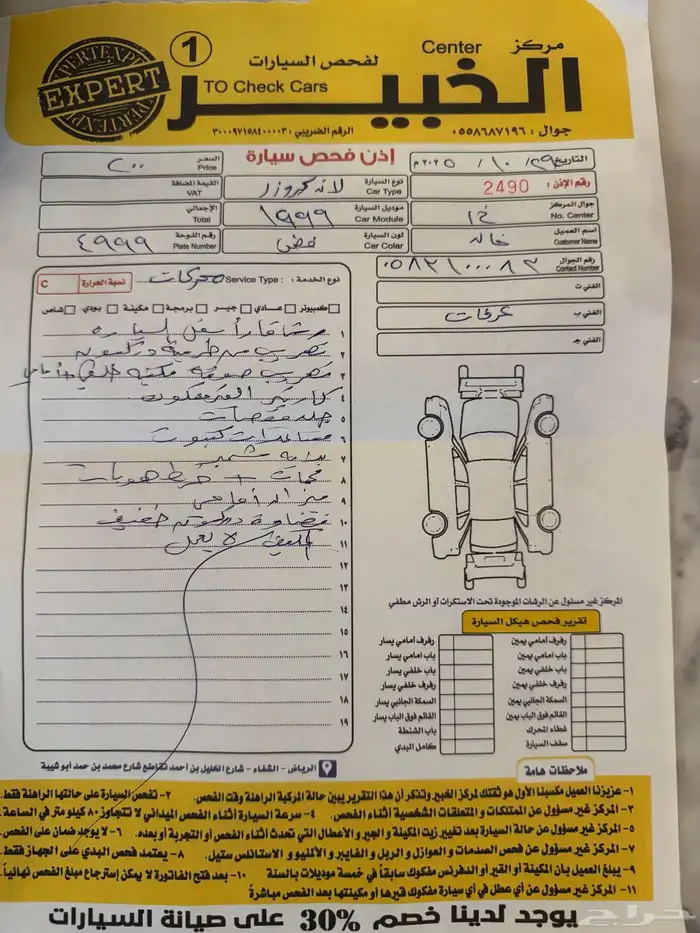 مركز Center
الخبير
لفحص السيارات
TO Check Cars
1
EXPERT
جوال : ٠٥٥٨٦٨٧١٩٦
الرقم الضريبي : ٣٠٠٠٩٧١٥٨٤٠٠٠٠٣
إذن فحص سيارة
التاريخ ٢٩ / ١٠ / ٢٠٢٥م
السعر Price ٢٠٠
رقم الإذن : 2490
نوع السيارة Car Type لاند كروزر
القيمة المضافة VAT
جوال المركز No. Center
موديل السيارة Car Module ١٩٩٩
الإجمالي Total
اسم العميل Customer Name خالد
لون السيارة Car Colar فضي
رقم اللوحة Plate Number ٤٩٩٩
رقم الجوال Contact Number
نوع الخدمة : Service Type : محركات
نسبة الحرارة C
الفني ت
الفني ب محركات
الفني جـ
كمبيوتر عادي جير برمجة مكينة بودي شاص
١
٢ تهريب من طرمبة دركسون
٣ تهريب صوفة
٤
٥ جلد مقصات
٦ مساعدات كبوت
٧
٨
٩
١٠
١١ لا يعمل
١٢
١٣
١٤
١٥
١٦
١٧
١٨
١٩
المركز غير مسئول عن الرشات الموجودة تحت الاستكرات أو الرش مطفي
تقرير فحص هيكل السيارة
رفرف أمامي يمين رفرف أمامي يسار
باب امامي يمين باب امامي يسار
باب خلفي يمين باب خلفي يسار
رفرف خلفي يمين رفرف خلفي يسار
السمكة الجانبي يمين السمكة الجانبي يسار
القائم فوق الباب يمين القائم فوق الباب يسار
غطاء المحرك باب الشنطة
سقف السيارة كامل البدي
الرياض - الشفاء - شارع الخليل بن أحمد تقاطع شارع محمد بن حمد أبو شيبة
ملاحظات هامة
١- عزيزنا العميل مكسبنا الأول هو ثقتك لمركز الخبير ونذكر أن هذا التقرير يبين حالة المركبة الراهنة وقت الفحص. ٢- تفحص السيارة على حالتها الراهنة فقط.
٣- المركز غير مسؤول عن الممتلكات و المتعلقات الشخصية أثناء الفحص. ٤- سرعة السيارة أثناء الفحص الميداني لا تتجاوز ٨٠ كيلو متر في الساعة.
٥- المركز غير مسؤول عن حالة السيارة بعد تغيير زيت المكينة و الجير و الأعطال التي تحدث أثناء الفحص أو التجربة أو بعده. ٦- لا يوجد ضمان على الفحص.
٧- المركز غير مسؤول عن فحص الصدمات و العوازل و الربل و الفايبر و الألمنيو و الاستانلس ستيل. ٨- يعتمد فحص البدي على الجهاز فقط.
٩- يبلغ العميل بأن المكينة أو القير أو الدفرنس مفكوك سابقاً في خمسة موديلات بالسنة ١٠- بعد فتح الفاتورة لا يمكن إسترجاع مبلغ الفحص نهائياً.
١١- المركز غير مسؤول عن أي عطل في أي سيارة مفكوك قيرها أو مكينتها بعد الفحص مباشرة
يوجد لدينا خصم 30% على صيانة السيارات
حراج